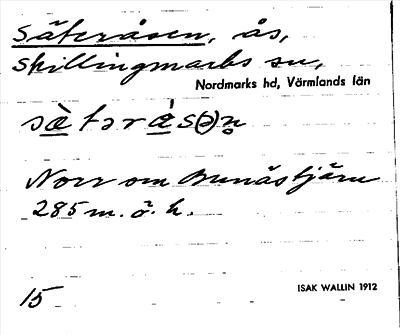 Säteråsen, ås,
Skillingmarks sn,
Nordmarks hd, Värmlands län
sὰtərά̀s(ə)n̥
Norr om Munästjärn
285 m. ö. h.
15
ISAK WALLIN 1912